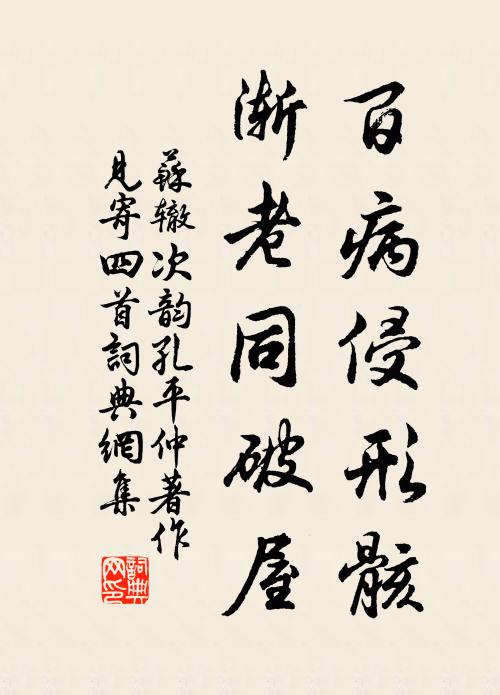 百病侵形骸
漸老同破屋
蘇辙次韵孔平仲著作
見寄四首詞典網集
詞典
网印